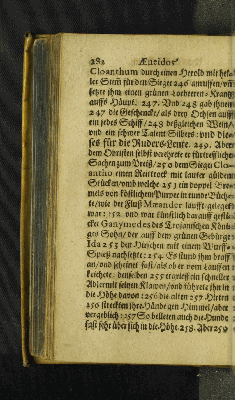 282 Æneidos
Cloanthum durch einen Herold mit hel-
ler Stim für den Sieger 246 auruffen/vnd
setzte jhm einen grünen Lorbeeren-Krantz
auffs Häupt. 247. Vnd 248 gab jhnen
247 die Geschencke/als drey Ochsen auff
ein jedes Schiff/248 deßgleichen Wein/
vnd ein schwer Talent Silbers: vnd die-
ses für die Ruders-Leute. 249. Aber
dem Obristen selbst verehrete er fürtreffliche
Sachen zum Preiß/250 dem Sieger Clo-
antho einen Reitrock mit lauter güldenen
Stücken/vmb welche 251 ein doppel
mels von köstlichem Purpur in runde
te/wie der Fluß Mæander laufft gelegt
war: 252. vnd war künstlich darauff gestü-
cket Ganymedes des Trojanischen Königes
ges Sohn/der auff dem grünen Gebürge
Ida 253 den Hirschen mit einem Wurff-
Spieß nachsetzte: 254. Es stund jhm
an/vnd scheinet fast/als ob er vom Lauffen
keichete: denselben 255 ein schneller
Adler mit seinen Klawen/vnd führete jhn in
die Höhe davon: 256 die alten 257 Hirten
256 streckten jhre Hände gen Himmel/aber
vergeblich: 257 So belleten auch die Hunde
fast sehr über sich in die Höhe 258. Aber 259